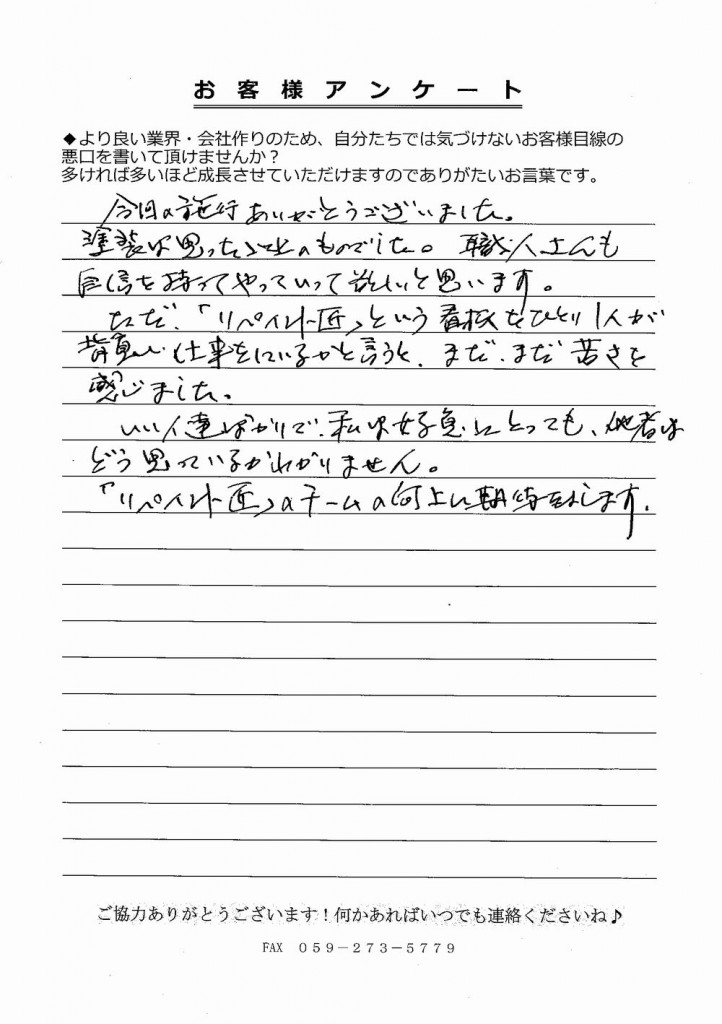 お客様アンケート
◆より良い業界・会社作りのため、自分たちでは気づけないお客様目線の
悪口を書いて頂けませんか？
多ければ多いほど成長させていただけますのでありがたいお言葉です。
今回の施行ありがとうございました。
塗装は思った以上のものでした。職人さんも
自信を持ってやっていって欲しいと思います。
ただ、「リペイント匠」という看板をひとり1人が
背負い仕事をしているかと言うと、まだ、まだ 苦さを
感じました。
いい人達ばかりで、私は好意にとっても、他者は
どう思っているかわかりません。
「リペイント匠」のチームの向上に期待をします。
ご協力ありがとうございます！何かあればいつでも連絡くださいね♪
FAX ０５９－２７３－５７７９